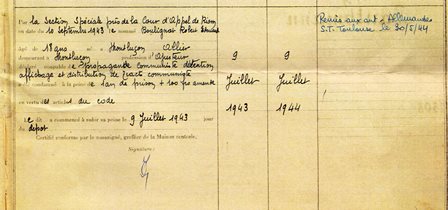 Par la Section Spéciale près de la Cour d'Appel de Riom
en date du 10 Septembre 1943 le nommé Boulignat Robert
âgé de 18 ans Montluçon Allier
demeurant à Montluçon profession d'Ajusteur
Propagande communiste détention,
affichage et distribution de tracts communistes
condamné à la peine de 1 an de prison + 100 frs amende
en vertu des articles du code
Le a commencé à subir sa peine le 9 Juillet 1943 jour
du dépôt
Certifié conforme par le soussigné, greffier de la Maison centrale.
Signature :
9
Juillet
1943
9
Juillet
1944
Remis aux aut. Allemandes
S.T. Toulouse le 30/5/44